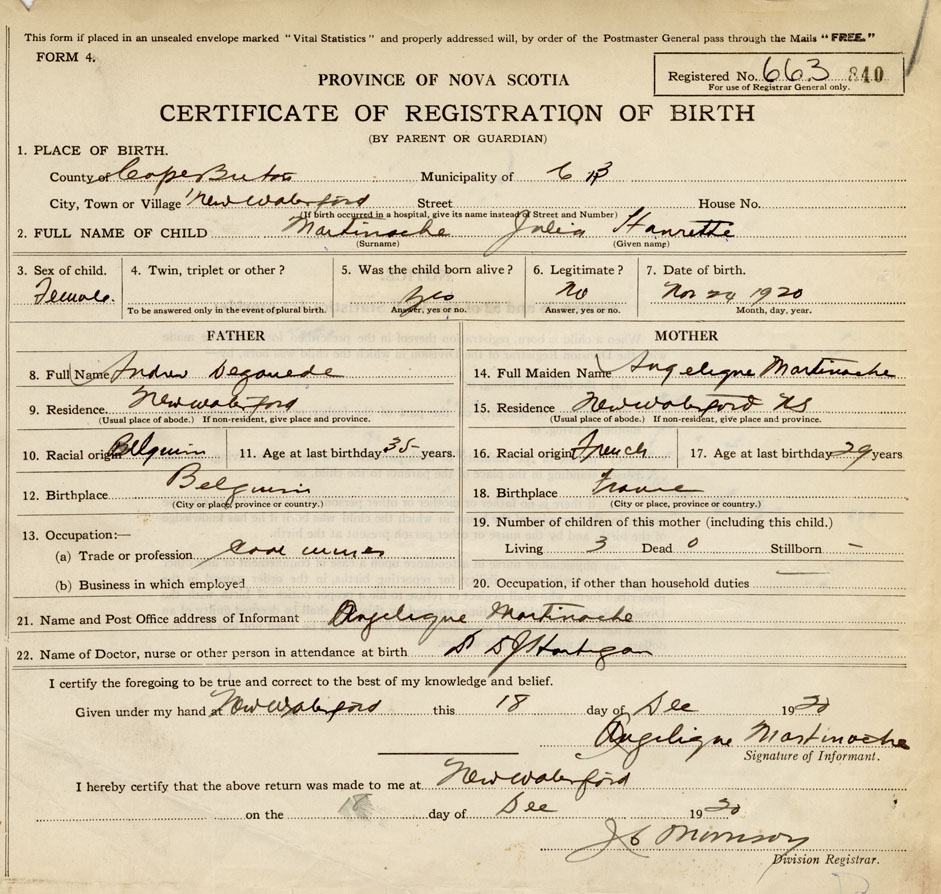 This form if placed in an unsealed envelope marked "Vital Statistics" and properly addressed will, by order of the Postmaster General pass through the Mails "FREE."
FORM 4.
Registered No. 663 840
For use of Registrar General only.
PROVINCE OF NOVA SCOTIA
CERTIFICATE OF REGISTRATION OF BIRTH
(BY PARENT OR GUARDIAN)
1. PLACE OF BIRTH.
County of Cape Breton Municipality of C B
City, Town or Village New Waterford Street House No.
(If birth occurred in a hospital, give its name instead of Street and Number)
2. FULL NAME OF CHILD Martinache Julia Hanrette
(Surname) (Given name)
3. Sex of child. 4. Twin, triplet or other? 5. Was the child born alive? 6. Legitimate? 7. Date of birth.
Female. yes No Nov 24 1920
To be answered only in the event of plural birth. Answer, yes or no. Answer, yes or no. Month, day, year.
FATHER MOTHER
8. Full Name Andrew 14. Full Maiden Name Angelique Martinache
9. Residence. New Waterford 15. Residence New Waterford NS
(Usual place of abode.) If non-resident, give place and province. (Usual place of abode.) If non-resident, give place and province.
10. Racial origin Belguim 11. Age at last birthday 35 years. 16. Racial origin French 17. Age at last birthday 29 years
12. Birthplace Belguim 18. Birthplace France
(City or place, province or country.) (City or place, province or country.)
13. Occupation:— 19. Number of children of this mother (including this child.)
(a) Trade or profession coal miner Living 3 Dead 0 Stillborn –
(b) Business in which employed 20. Occupation, if other than household duties
21. Name and Post Office address of Informant Angelique Martinache
22. Name of Doctor, nurse or other person in attendance at birth Dr D J Hartigan
I certify the foregoing to be true and correct to the best of my knowledge and belief.
Given under my hand at New Waterford this 18 day of Dec 1920
Angelique Martinache
Signature of Informant.
I hereby certify that the above return was made to me at New Waterford
on the 18 day of Dec 1920
J C Morrison
Division Registrar.